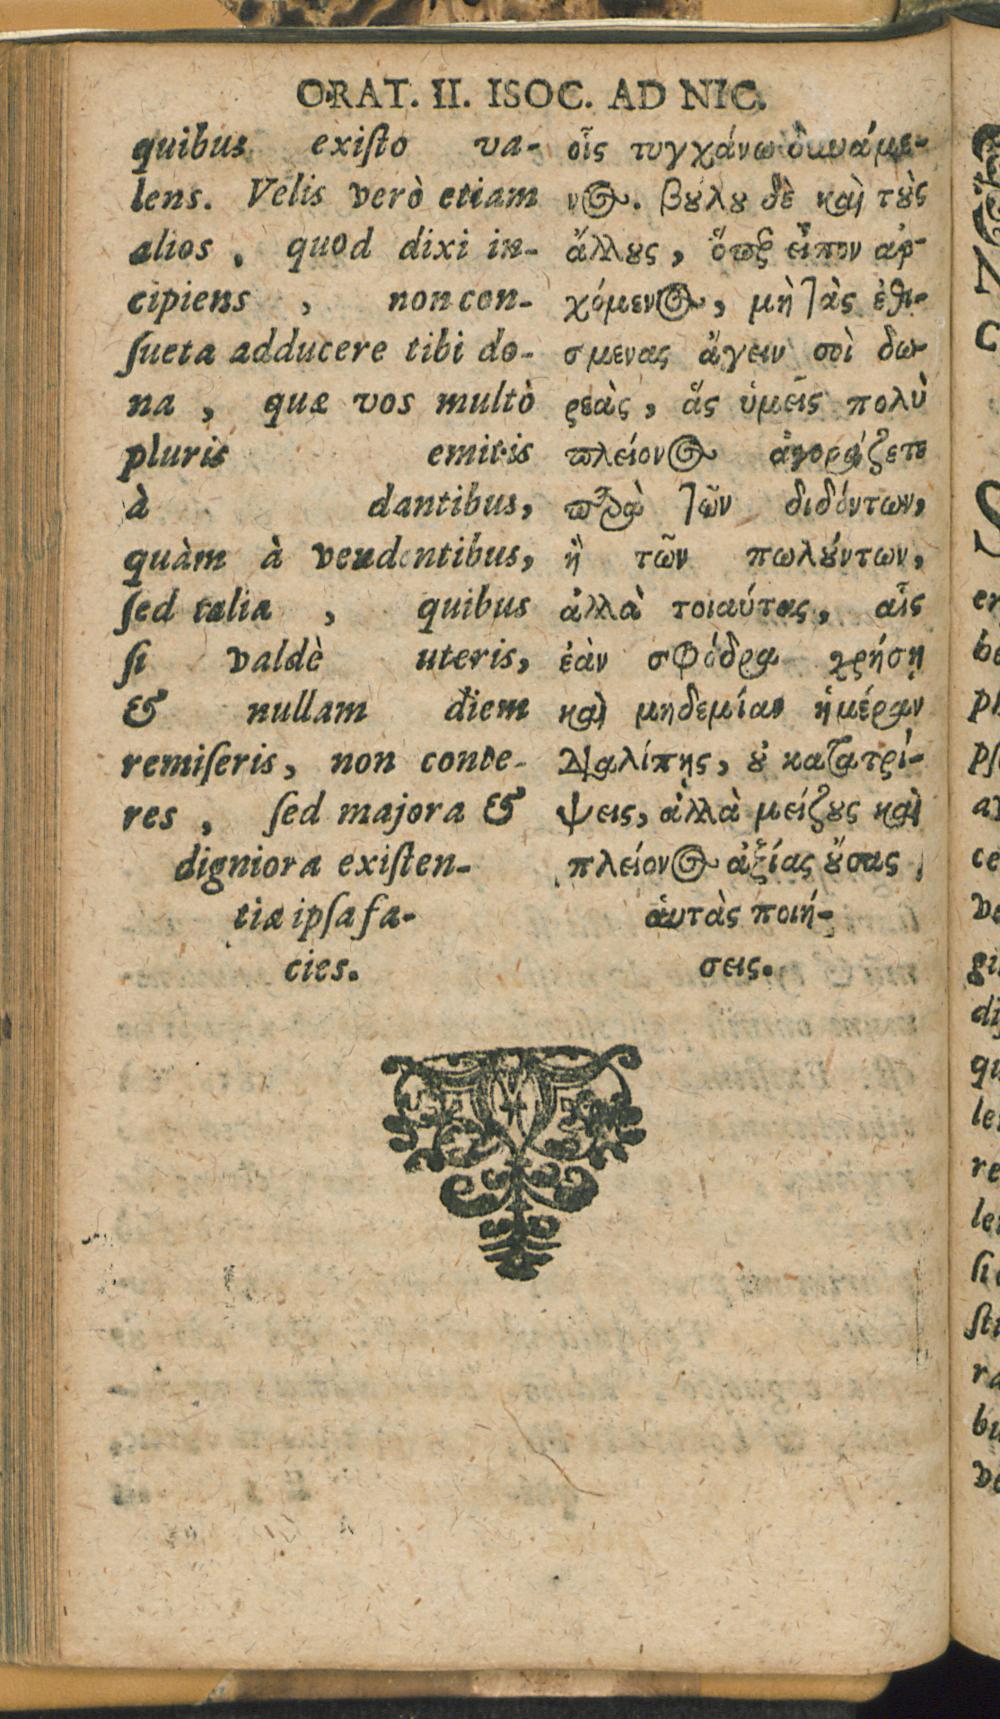 ORAT. II. ISOC. AD NIC.
quibus existo va-
lens. Velis verò etiam
alios, quod dixi in-
cipiens, non con-
ſueta adducere tibi do-
na, quæ vos multò
pluris emitis
à dantibus,
quàm à vendentibus,
ſed talia, quibus
ſi valdè uteris,
& nullam diem
remiſeris, non conte-
res, ſed majora &
digniora exiſten-
tiæ ipſa fa-
cies.
οἷς τυγχάνω δυνάμε-
νος. βούλου δὲ καὶ τοὺς
ἄλλους, ὅπερ εἶπον ἀρ-
χόμενος, μὴ τὰς ἐθι-
σμενας ἄγειν σοὶ δω-
ρεὰς, ἅς ὑμεῖς πολὺ
πλείονος ἀγοράζετε
παρὰ τῶν διδόντων,
ἢ τῶν πωλούντων,
ἀλλὰ τοιαύτας, αἷς
ἐὰν σφόδρα χρήσῃ
καὶ μηδεμίαν ἡμέραν
διαλίπῃς, οὐ κατατρί-
ψεις, ἀλλὰ μείζους καὶ
πλείονος ἀξίας οὔσας
ἀυτὰς ποιή-
σεις.